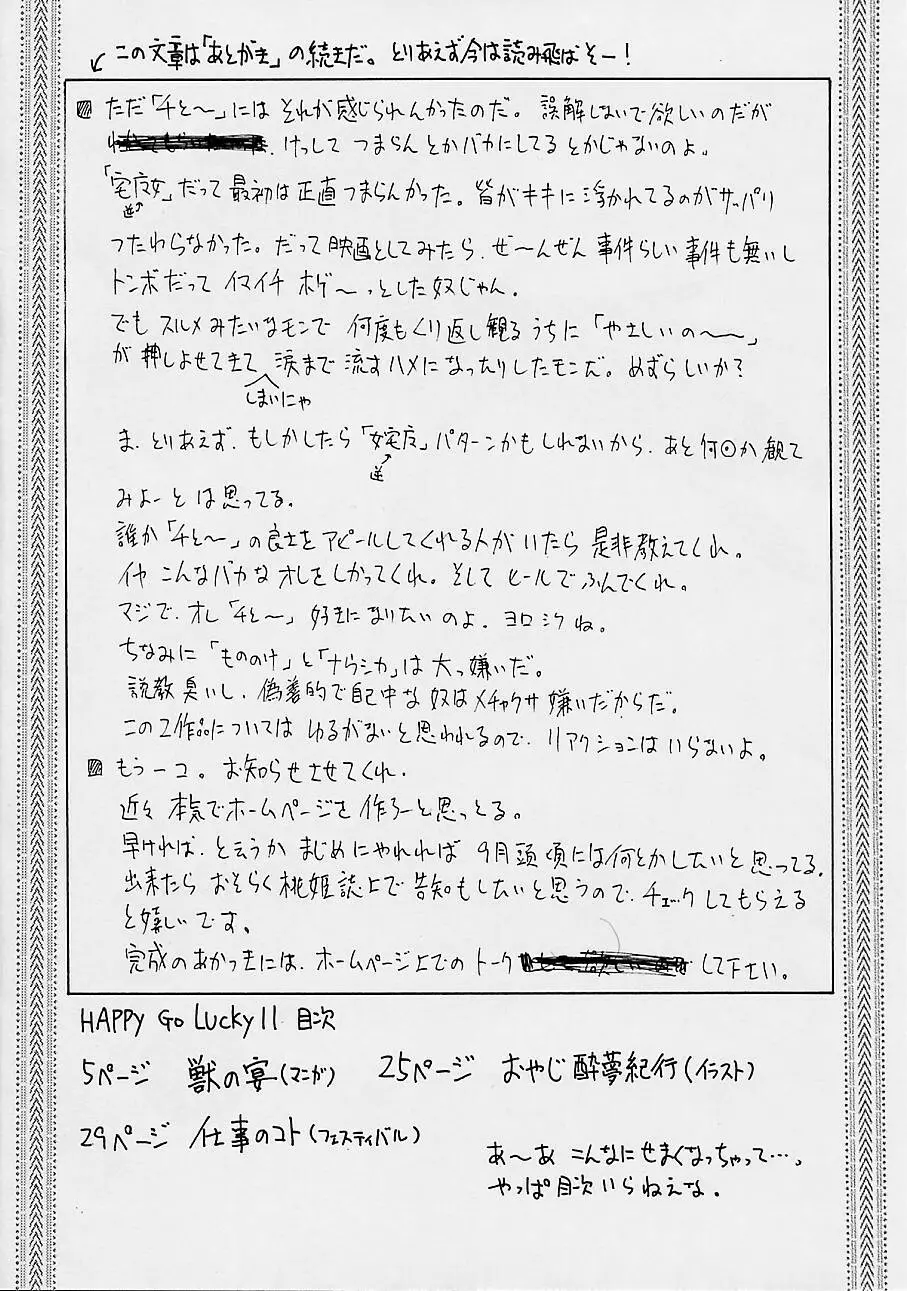 この文章は「あとがき」の続きだ。とりあえず今は読み飛ばそー!
ただ「千と〜」には それが感じられんかったのだ。誤解しないで欲しいのだが
けっして つまらんとかバカにしてるとかじゃないのよ。
「宅広女」だって最初は正直つまらんかった。皆がキキに浮かれてるのがサッパリ
逆
つたわらなかった。だって映画としてみたら、ぜ〜んぜん事件らしい事件も無いし
トンボだって イマイチ ホゲ〜っとした奴じゃん。
でも スルメみたいなモンで 何度もくり返し観るうちに「やさしいの〜〜」
が押しよせてきて 涙まで流すハメになったりしたモンだ。めずらしいか?
しまいにゃ
ま、とりあえず、もしかしたら「女宅広」パターンかもしれないから、あと何回か観て
逆
みよーとは思ってる。
誰か「千と〜」の良さをアピールしてくれる人がいたら 是非教えてくれ。
イヤ こんなバカなオレをしかってくれ。そして ヒールでふんでくれ。
マジで、オレ「千と〜」好きになりたいのよ、ヨロシクね。
ちなみに「もののけ」と「ナウシカ」は大っ嫌いだ。
説教臭いし、偽善的で自己中な奴はメチャクサ嫌いだからだ。
この2作品については ゆるがないと思われるので、リアクションはいらないよ。
もう一コ。お知らせさせてくれ。
近々 本気でホームページを作ろーと思っとる。
早ければ、と云うか まじめにやれれば 9月頭頃には何とかしたいと思ってる。
出来たら おそらく桃姫誌上で告知もしたいと思うので、チェックしてもらえる
と嬉しいです。
完成のあかつきには、ホームページ上でのトーク して下さい。
HAPPY Go Lucky 11 目次
5ページ 獣の宴(マンガ) 25ページ おやじ酔夢紀行(イラスト)
29ページ 仕事のコト(フェスティバル)
あ〜あ こんなにせまくなっちゃって…、
やっぱ目次いらねえな。